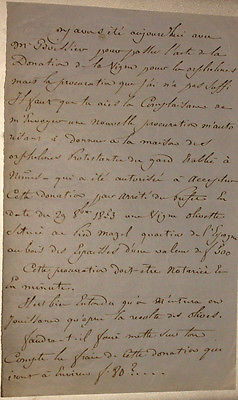 nous été aujourd'hui avec
Mr pour passer l'acte de la
Donation de la Vigne pour les orphelines
mais la procuration que j'ai n'a pas suffi
Il faut que tu aies la Complaisance de
m'Envoyer une nouvelle procuration m'auto
risant à donner à la maison des
orphelines Protestantes du gard Etablie à
Nimes qui a été autorisée à accepter
Cette donation par arrêté du Préfet en
date du 29 1853 une Vigne olivette
Située au lieu mazel quartier de
au bois des Espeisses d'une valeur de f 500
Cette procuration doit être Notariée et
En minute.
Il est bien Entendu qu'on n'entrera en
Jouissance qu'après la récolte des olives.
faudra-t-il faire mettre sur ton
Compte les frais de cette donation qui
iront à Environ f 80 ?....